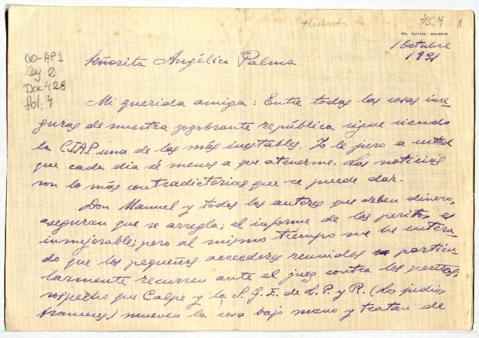 46.4
1 Octubre
1931
CO-AP1
Doc 428
fol. 4
Señorita Angélica Palma
Mi querida amiga: Entre todas las cosas inse-
guras de nuestra zozobrante república sigue siendo
la CIAP una de las más inestables. Yo le juro a usted
que cada día sé menos a que atenerme. Las noticias
son lo más contradictorias que se puede dar.
Don Manuel y todos los autores que deben dinero,
aseguran que se arregla; el informe de los peritos es
inmejorable; pero al mismo tiempo me he entera-
do que los pequeños acreedores reunidos particu-
larmente recurren ante el juez contra los peritos,
sospecho que Calpe y la S.G.E. de L.P. y R. (los judíos
franceses) mueven la cosa bajo mano y tratan de